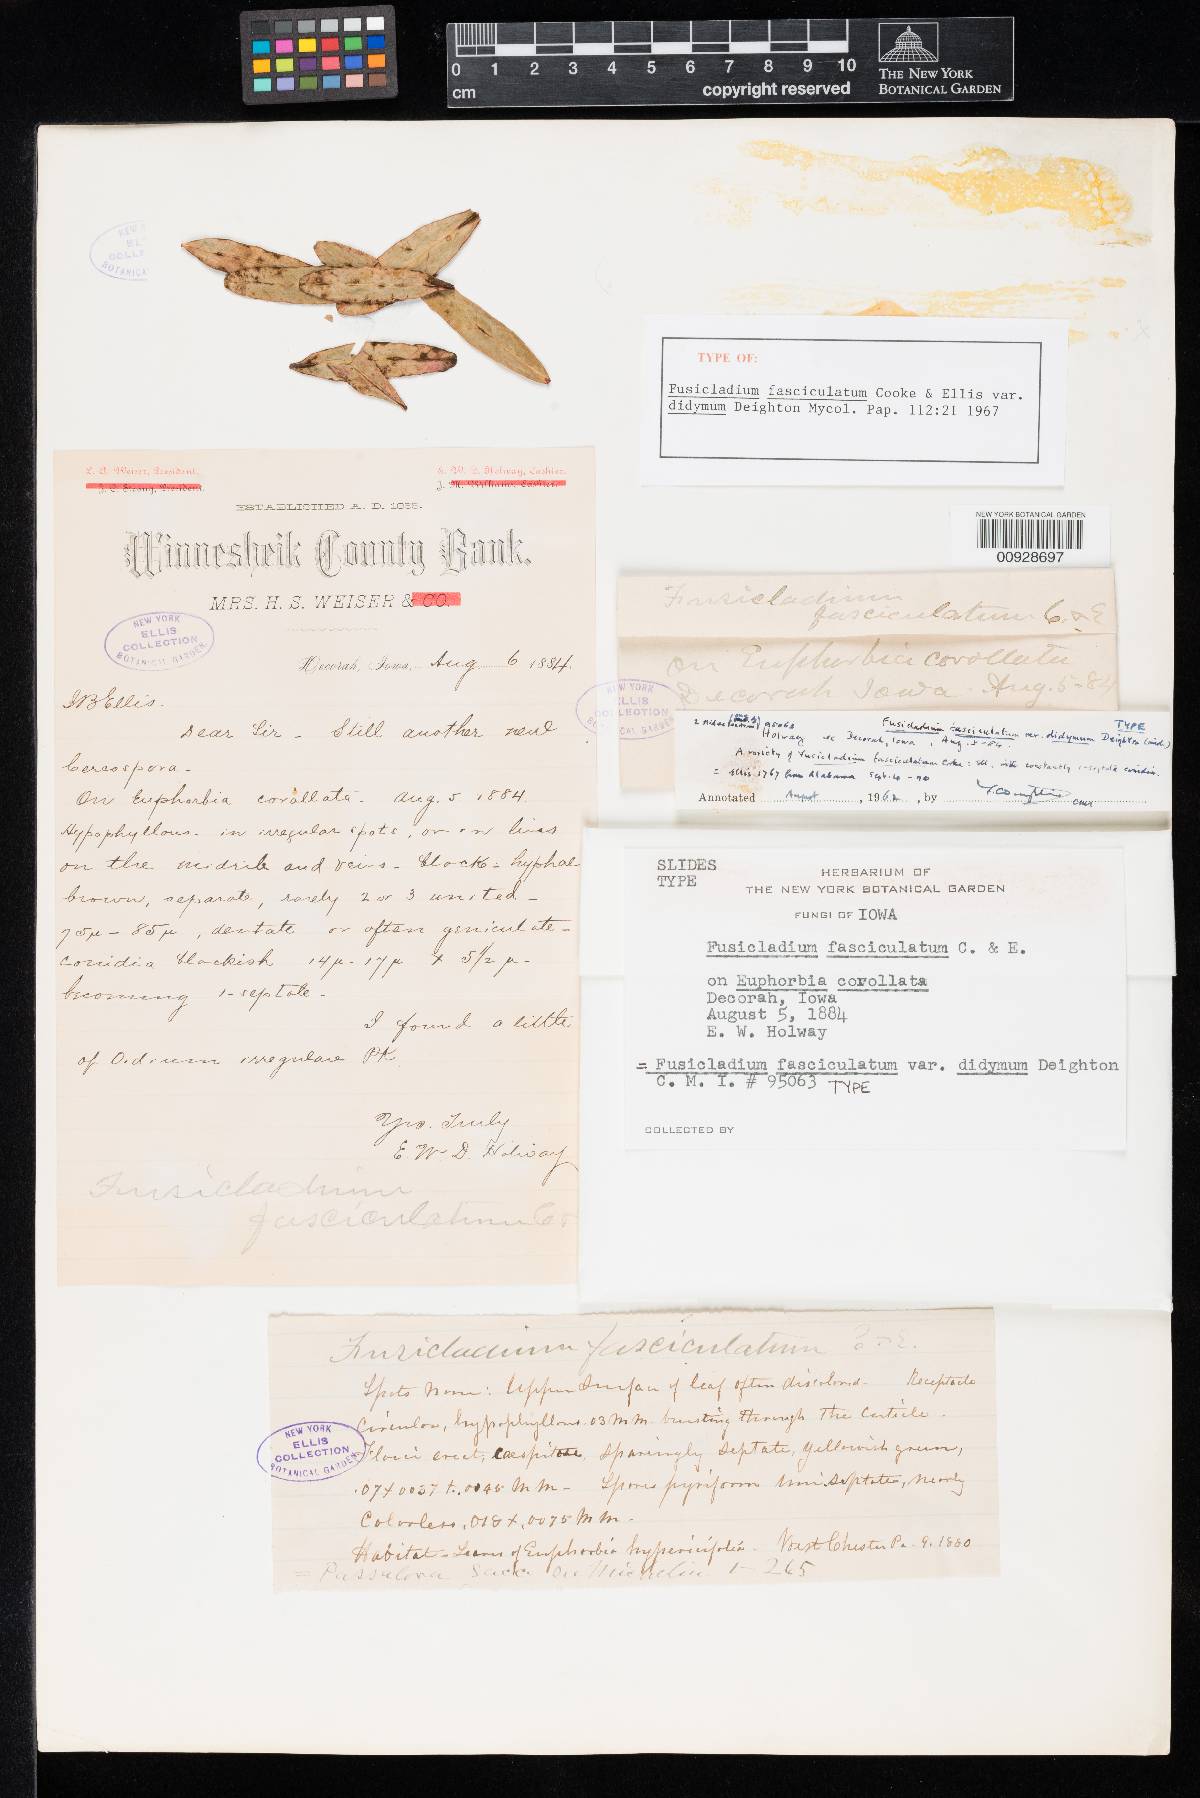 0 1 2 3 4 5 6 7 8 9 10
cm
copyright reserved
THE NEW YORK
BOTANICAL GARDEN
NEW
EL
COLLE
BOTANICA
TYPE OF:
Fusicladium fasciculatum Cooke & Ellis var.
didymum Deighton Mycol. Pap. 112:21 1967
NEW YORK BOTANICAL GARDEN
00928697
President.
J. C. Strong, President.
E. W. D. Holway, Cashier.
J. M. Williams, Cashier.
ESTABLISHED A. D. 1855.
Winnesheik County Bank.
MRS. H. S. WEISER & CO.
NEW YORK
ELLIS
COLLECTION
BOTANICAL GARDEN
Decorah, Iowa, Aug 6 1884.
J B Ellis.
Dear Sir - Still another
Cercospora -
On Euphorbia corollata - Aug. 5 1884
Hypophyllous - in irregular spots, or in lines
on the midrib and veins - black - hyphae
brown, separate, rarely 2 or 3 united -
75µ - 85µ, dentate or often geniculate -
conidia blackish 14µ - 17µ x 5½ µ -
becoming 1-septate -
I found a little
of Oidium irregulare PK.
Yrs. Truly
E. W. D. Holway
Fusicladium
fasciculatum C &
Fusicladium
fasciculatum C. & E
on Euphorbia corollata
Decorah Iowa - Aug. 5 - 84
NEW YORK
ELLIS
COLLECTION
BOTANICAL GARDEN
TYPE
95063 Fusicladium fasciculatum var. didymum Deighton
Holway Decorah, Iowa, Aug. 5 - 84.
A variety of Fusicladium fasciculatum Cooke & Ell. with constantly 1-septate conidia.
= Ellis 1767 from Alabama
Annotated August, 1962, by
SLIDES
TYPE
HERBARIUM OF
THE NEW YORK BOTANICAL GARDEN
FUNGI OF IOWA
Fusicladium fasciculatum C. & E.
on Euphorbia corollata
Decorah, Iowa
August 5, 1884
E. W. Holway
= Fusicladium fasciculatum var. didymum Deighton
C. M. I. # 95063 TYPE
COLLECTED BY
Fusicladium fasciculatum C & E.
Spots None: Upper Surface of leaf often discolored - Receptacle
Circular, hypophyllous .03 MM bursting through the Cuticle.
Flocci erect, caespitose, sparingly septate, yellowish green,
.07 x 0037 to .0045 MM - Spores pyriform uniseptate, nearly
Colorless, .018 x .0075 MM -
Habitat - Leaves of Euphorbia hypericifolia - West Chester Pa - 9. 1880
= Passalora
1 - 265
NEW YORK
ELLIS
COLLECTION
BOTANICAL GARDEN